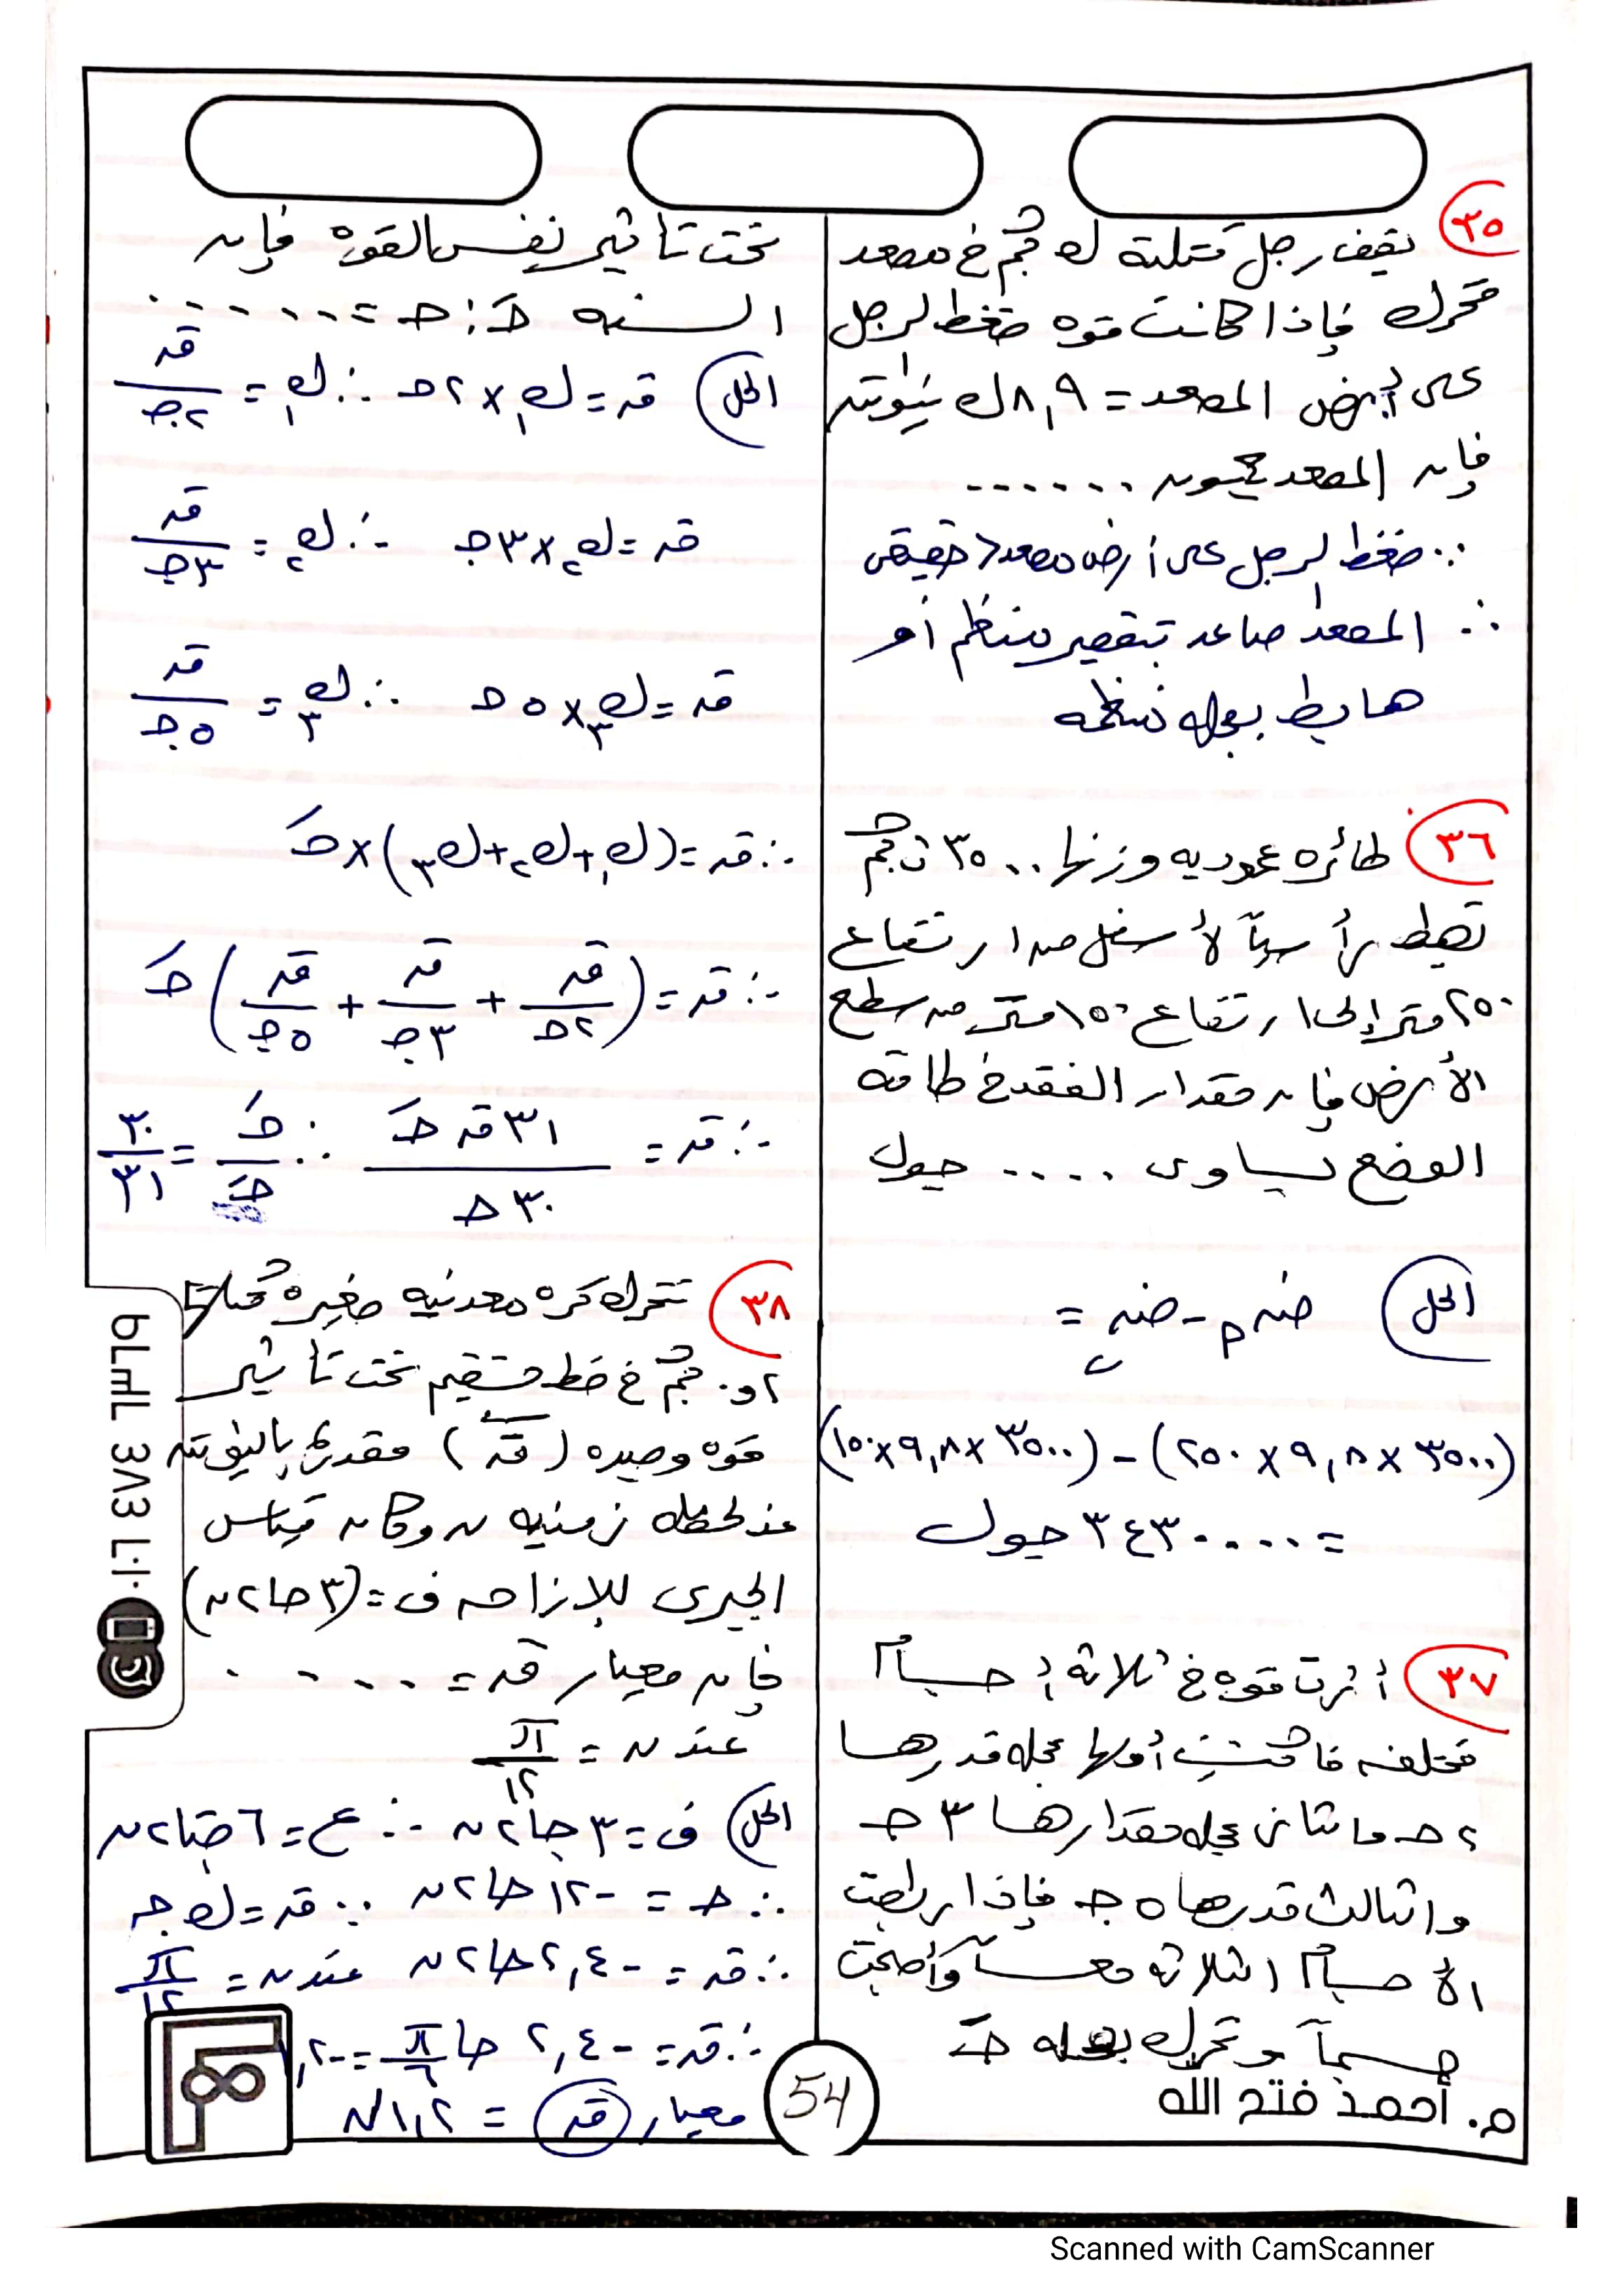 ٣٥ يقف رجل كتلته ك كجم في مصعد
متحرك فإذا كانت قوة ضغط الرجل
على أرض المصعد = ٨,٩ ك نيوتن
فإن المصعد يكون ......
∵ ضغط الرجل على أرض مصعد > حقيقى
∴ المصعد صاعد بتقصير منتظم أو
هابط بعجلة منتظمة
٣٦ طائرة عمودية وزنها ٣٥٠٠ ث كجم
تهبط رأسياً لأسفل من ارتفاع
٢٥٠ متر إلى ارتفاع ١٥٠ متر من سطح
الأرض فإن مقدار الفقد في طاقة
الوضع يساوى .... جول
الحل ضہ م - ضہ ب =
(٣٥٠٠ × ٩,٨ × ٢٥٠) - (٣٥٠٠ × ٩,٨ × ١٥٠)
= ٣٤٣٠٠٠٠ جول
٣٧ أثرت قوة في ثلاثة أجسام
مختلفة فاكتسبت أولها عجلة قدرها
٢ حـ والثانى عجلة مقدارها ٣ حـ
والثالث قدرها ٥ حـ فإذا ربطت
الأجسام الثلاثة معاً وأصبحت
جسماً وتحرك بعجلة حـَ
تحت تأثير نفس القوة فإن
النسبة حـَ : حـ = ......
الحل قہ = ك١ × ٢حـ ∴ ك١ = قہ/٢حـ
قہ = ك٢ × ٣حـ ∴ ك٢ = قہ/٣حـ
قہ = ك٣ × ٥حـ ∴ ك٣ = قہ/٥حـ
∴ قہ = (ك١ + ك٢ + ك٣) × حـَ
∴ قہ = (قہ/٢حـ + قہ/٣حـ + قہ/٥حـ) حـَ
∴ قہ = ٣١ قہ حـَ/٣٠ حـ ∴ حـَ/حـ = ٣٠/٣١
٣٨ تتحرك كرة معدنية صغيرة كتلتها
٠,٢ كجم في خط مستقيم تحت تأثير
قوة وحيدة (قہ) مقدرة بالنيوتن
عند لحظة زمنية ن وكان قياس
الجبرى للإزاحة ف = (٣ حا٢ن)
فإن معيار قہ = ....
عند ن = π/١٢
الحل ف = ٣ حا٢ن ∴ ع = ٦ حتا٢ن
∴ حـ = -١٢ حا٢ن ∵ قہ = ك حـ
∴ قہ = -٢,٤ حا٢ن عند ن = π/١٢
∴ قہ = -٢,٤ حا π/٦ = -١,٢
معيار قہ = ١,٢ N
م. أحمد فتح الله
54
Scanned with CamScanner